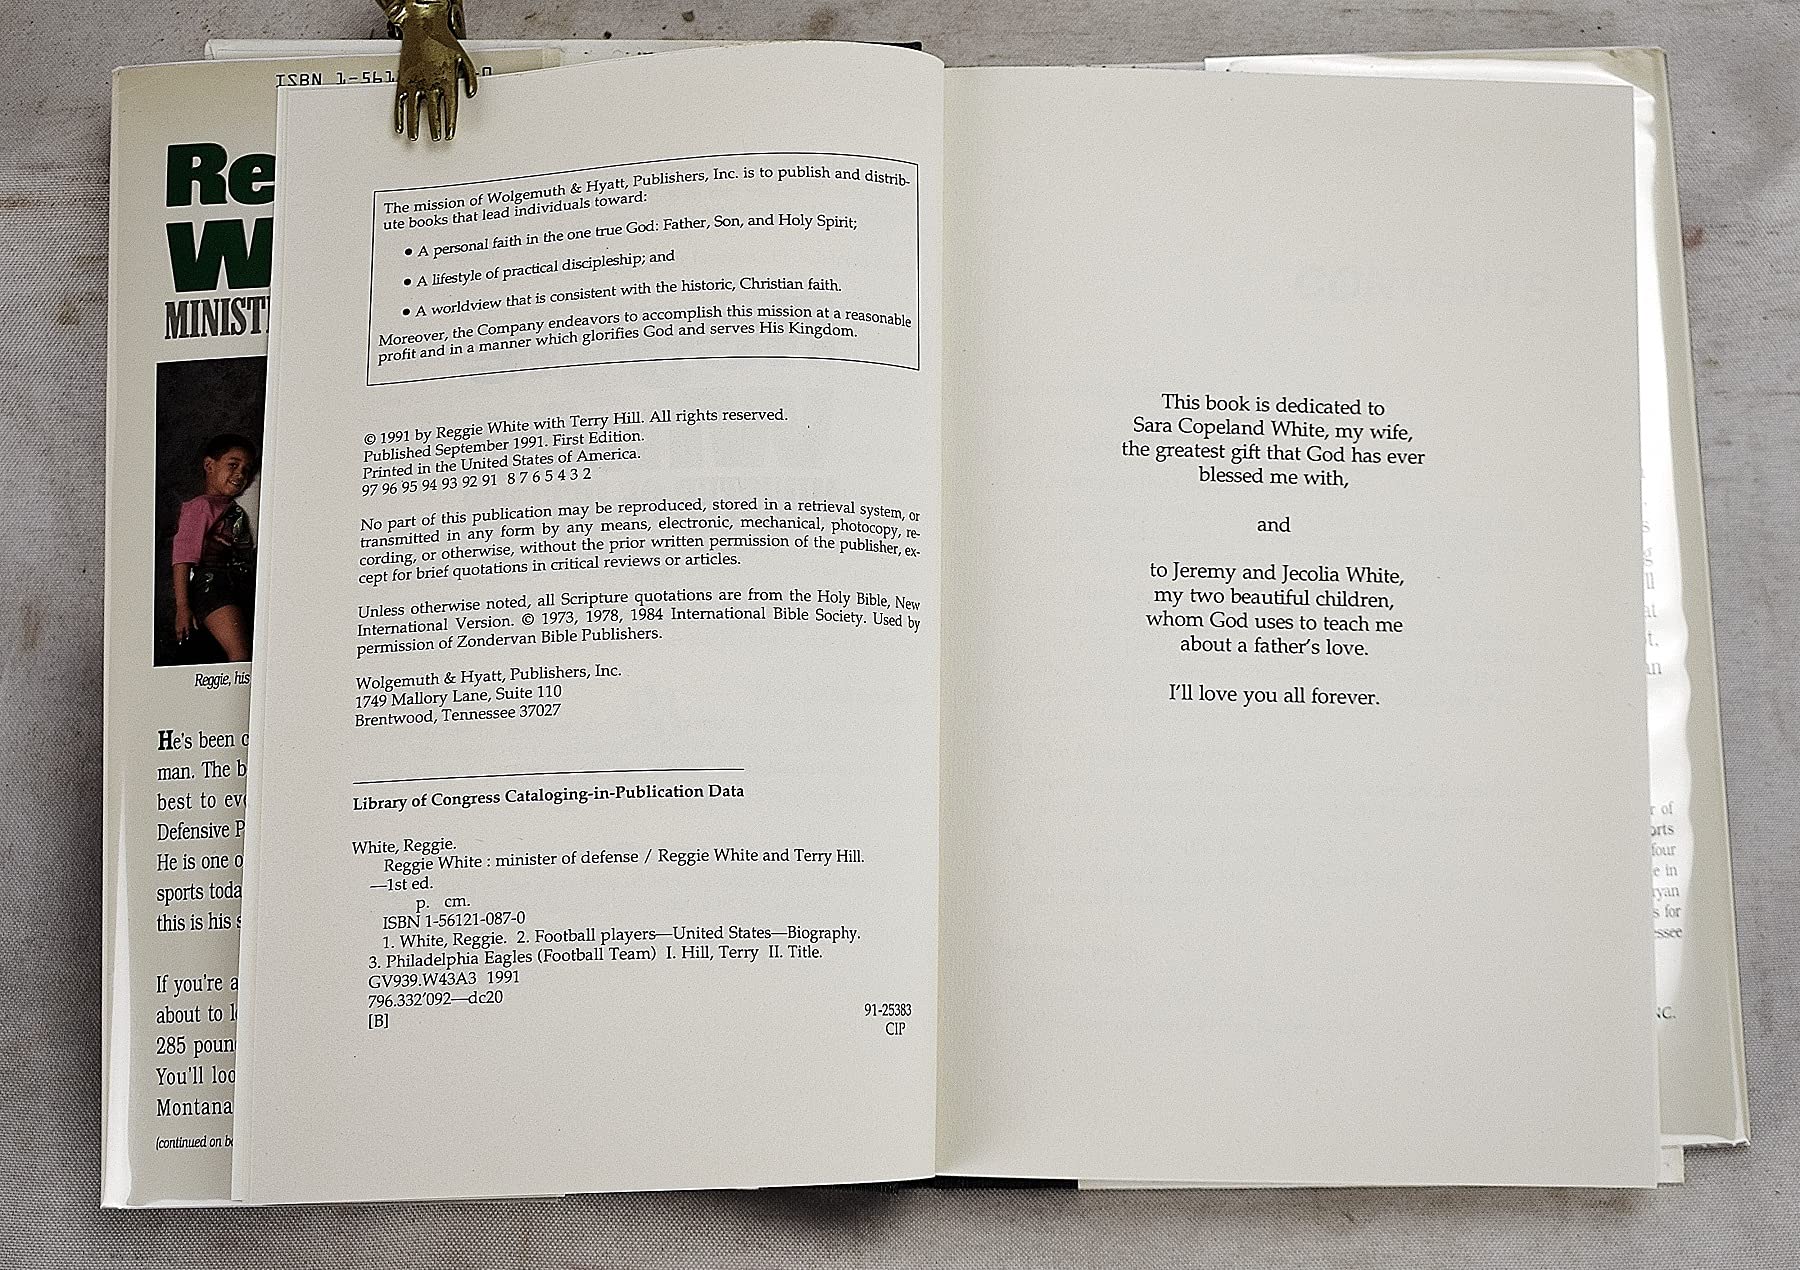 ISBN 1-561
-0
Re
W
MINIST
Reggie, his
He's been
man. The
best to
Defensive
He is one
sports
this is his
If you're a
about to
285
You'll
Montana
(continued on
The mission of Wolgemuth & Hyatt, Publishers, Inc. is to publish and distrib-
ute books that lead individuals toward:
• A personal faith in the one true God: Father, Son, and Holy Spirit;
• A lifestyle of practical discipleship; and
• A worldview that is consistent with the historic, Christian faith.
Moreover, the Company endeavors to accomplish this mission at a reasonable
profit and in a manner which glorifies God and serves His Kingdom.
© 1991 by Reggie White with Terry Hill. All rights reserved.
Published September 1991. First Edition.
Printed in the United States of America.
97 96 95 94 93 92 91 8 7 6 5 4 3 2
No part of this publication may be reproduced, stored in a retrieval system, or
transmitted in any form by any means, electronic, mechanical, photocopy, re-
cording, or otherwise, without the prior written permission of the publisher, ex-
cept for brief quotations in critical reviews or articles.
Unless otherwise noted, all Scripture quotations are from the Holy Bible, New
International Version. © 1973, 1978, 1984 International Bible Society. Used by
permission of Zondervan Bible Publishers.
Wolgemuth & Hyatt, Publishers, Inc.
1749 Mallory Lane, Suite 110
Brentwood, Tennessee 37027
Library of Congress Cataloging-in-Publication Data
White, Reggie.
Reggie White : minister of defense / Reggie White and Terry Hill.
—1st ed.
p. cm.
ISBN 1-56121-087-0
1. White, Reggie. 2. Football players—United States—Biography.
3. Philadelphia Eagles (Football Team) I. Hill, Terry II. Title.
GV939.W43A3 1991
796.332'092—dc20
[B]
91-25383
CIP
This book is dedicated to
Sara Copeland White, my wife,
the greatest gift that God has ever
blessed me with,
and
to Jeremy and Jecolia White,
my two beautiful children,
whom God uses to teach me
about a father's love.
I'll love you all forever.